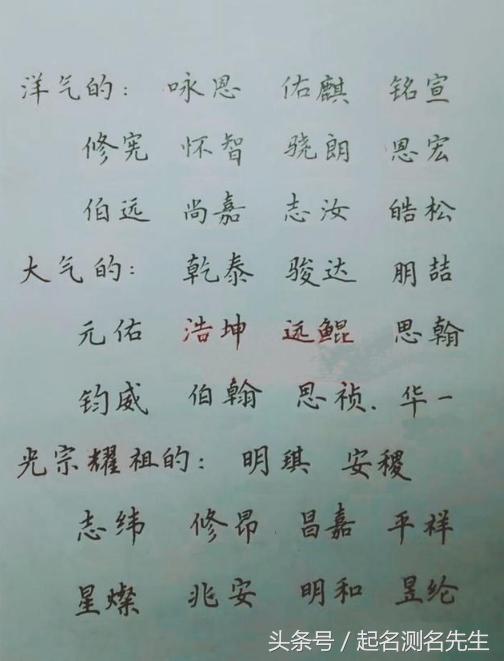 洋气的： 咏恩 佑麒 铭宣
修宪 怀智 骁朗 恩宏
伯远 尚嘉 志汝 皓松
大气的： 乾泰 骏达 朋喆
元佑 浩坤 远鲲 思翰
钧威 伯翰 思祯. 华一
光宗耀祖的： 明琪 安稷
志纬 修昂 昌嘉 平祥
星燦 兆安 明和 昱纶
头条号 / 起名测名先生